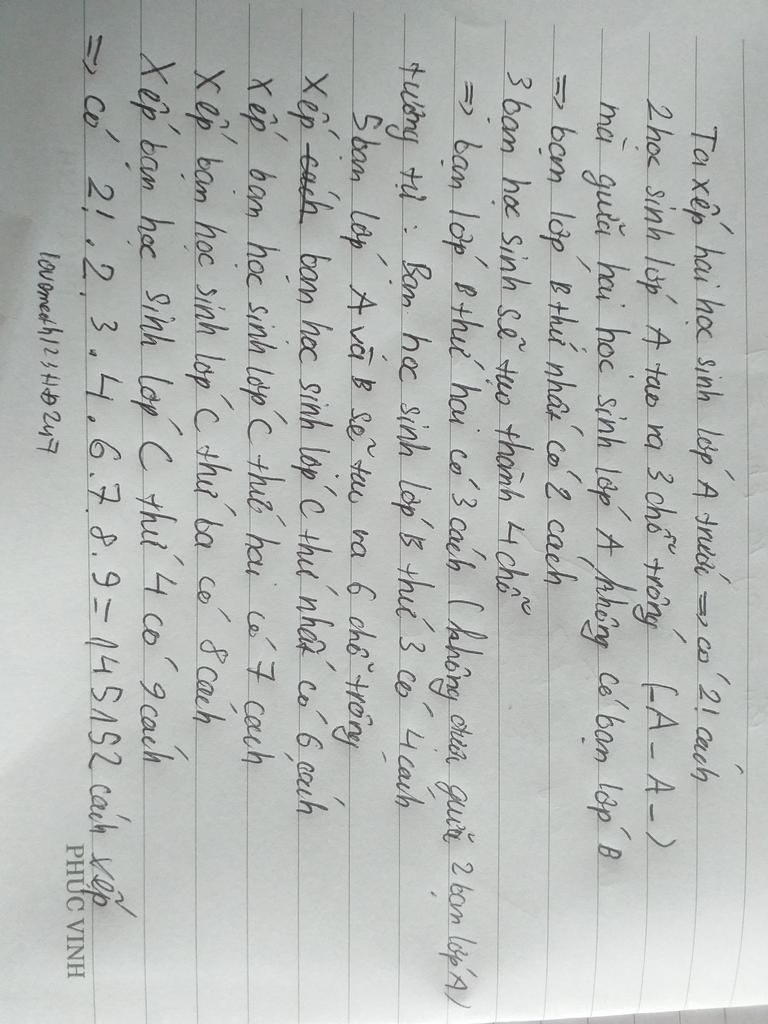 Ta xếp hai học sinh lớp A trước => có 2! cách
2 học sinh lớp A tạo ra 3 chỗ trống (-A-A-)
mà giữa hai học sinh lớp A không có bạn lớp B
=> bạn lớp B thứ nhất có 2 cách
3 bạn học sinh sẽ tạo thành 4 chỗ
=> bạn lớp B thứ hai có 3 cách (không chèn giữa 2 bạn lớp A)
tương tự: Bạn học sinh lớp B thứ 3 có 4 cách
5 bạn lớp A và B sẽ tạo ra 6 chỗ trống
Xếp cách bạn học sinh lớp C thứ nhất có 6 cách
Xếp bạn học sinh lớp C thứ hai có 7 cách
Xếp bạn học sinh lớp C thứ ba có 8 cách
Xếp bạn học sinh lớp C thứ 4 có 9 cách
=> có 2!.2.3.4.6.7.8.9=145152 cách xếp
PHÚC VINH